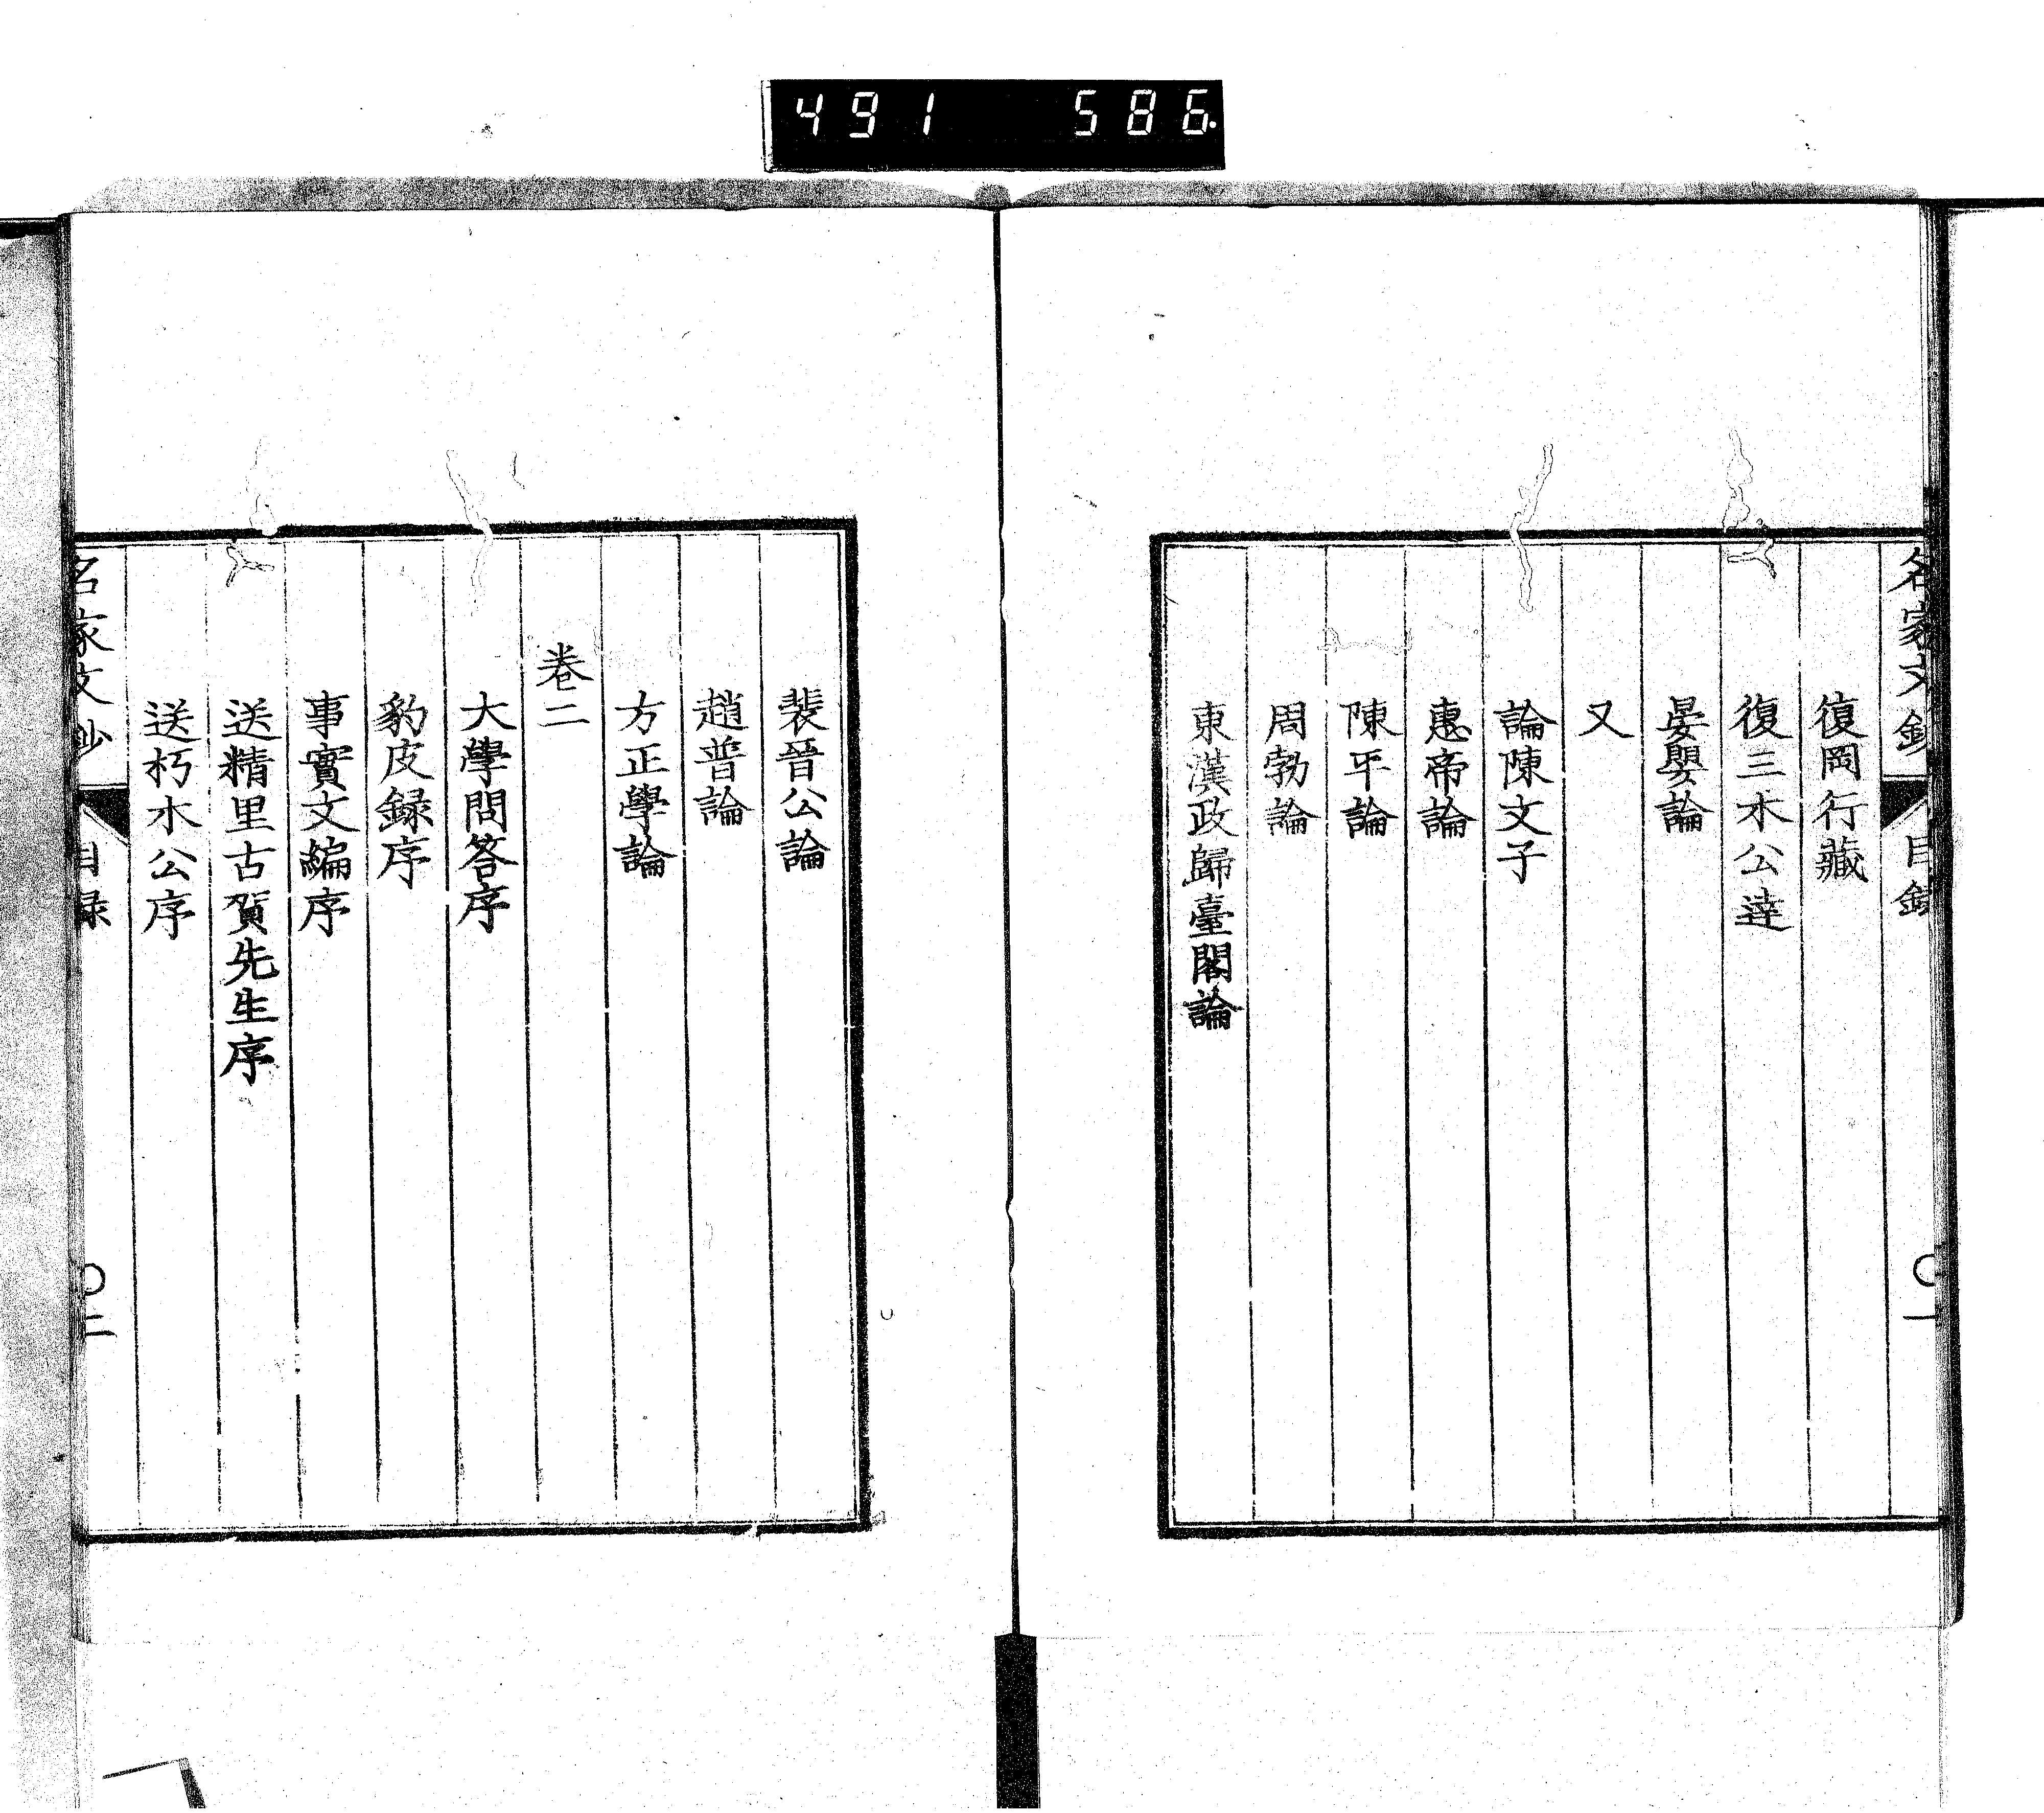 491 586.
名家文鈔 目録 〇一
復岡行藏
復三木公逹
晏嬰論
又
論陳文子
惠帝論
陳平論
周勃論
東漢政歸臺閣論
裴晉公論
趙普論
方正學論
卷二
大學問答序
豹皮録序
事實文編序
送精里古賀先生序
送朽木公序
名家文鈔 目録 〇二